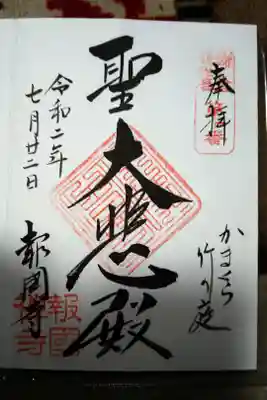 奉拝
かまくら
竹の庭
聖大悲殿
令和二年
七月廿二日
報国寺
報國